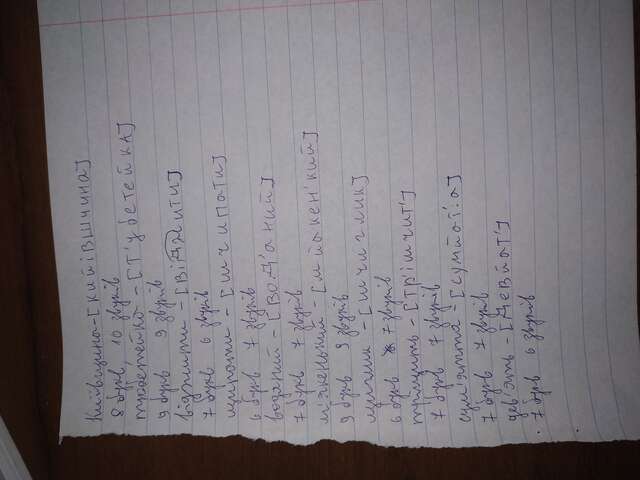 Київщина - [КИЙІВШЧИНА]
8 букв, 10 звуків
тюбетейка - [Т'УБЕТЕЙКА]
9 букв 9 звуків
віджити - [ВІДЖИТИ]
7 букв 6 звуків
щипати - [ШЧИПАТИ]
6 букв 7 звуків
водяний - [ВОД'АНИЙ]
7 букв 7 звуків
м'якенький - [МЙАКЕН'КИЙ]
9 букв 9 звуків
щиглик - [ШЧИГЛИК]
6 букв 7 звуків
тріщить - [ТР'ІШЧИТ']
7 букв 7 звуків
сум'яття - [СУМЙАТ':А]
7 букв 7 звуків
дев'ять - [ДЕВЙАТ']
7 букв 6 звуків